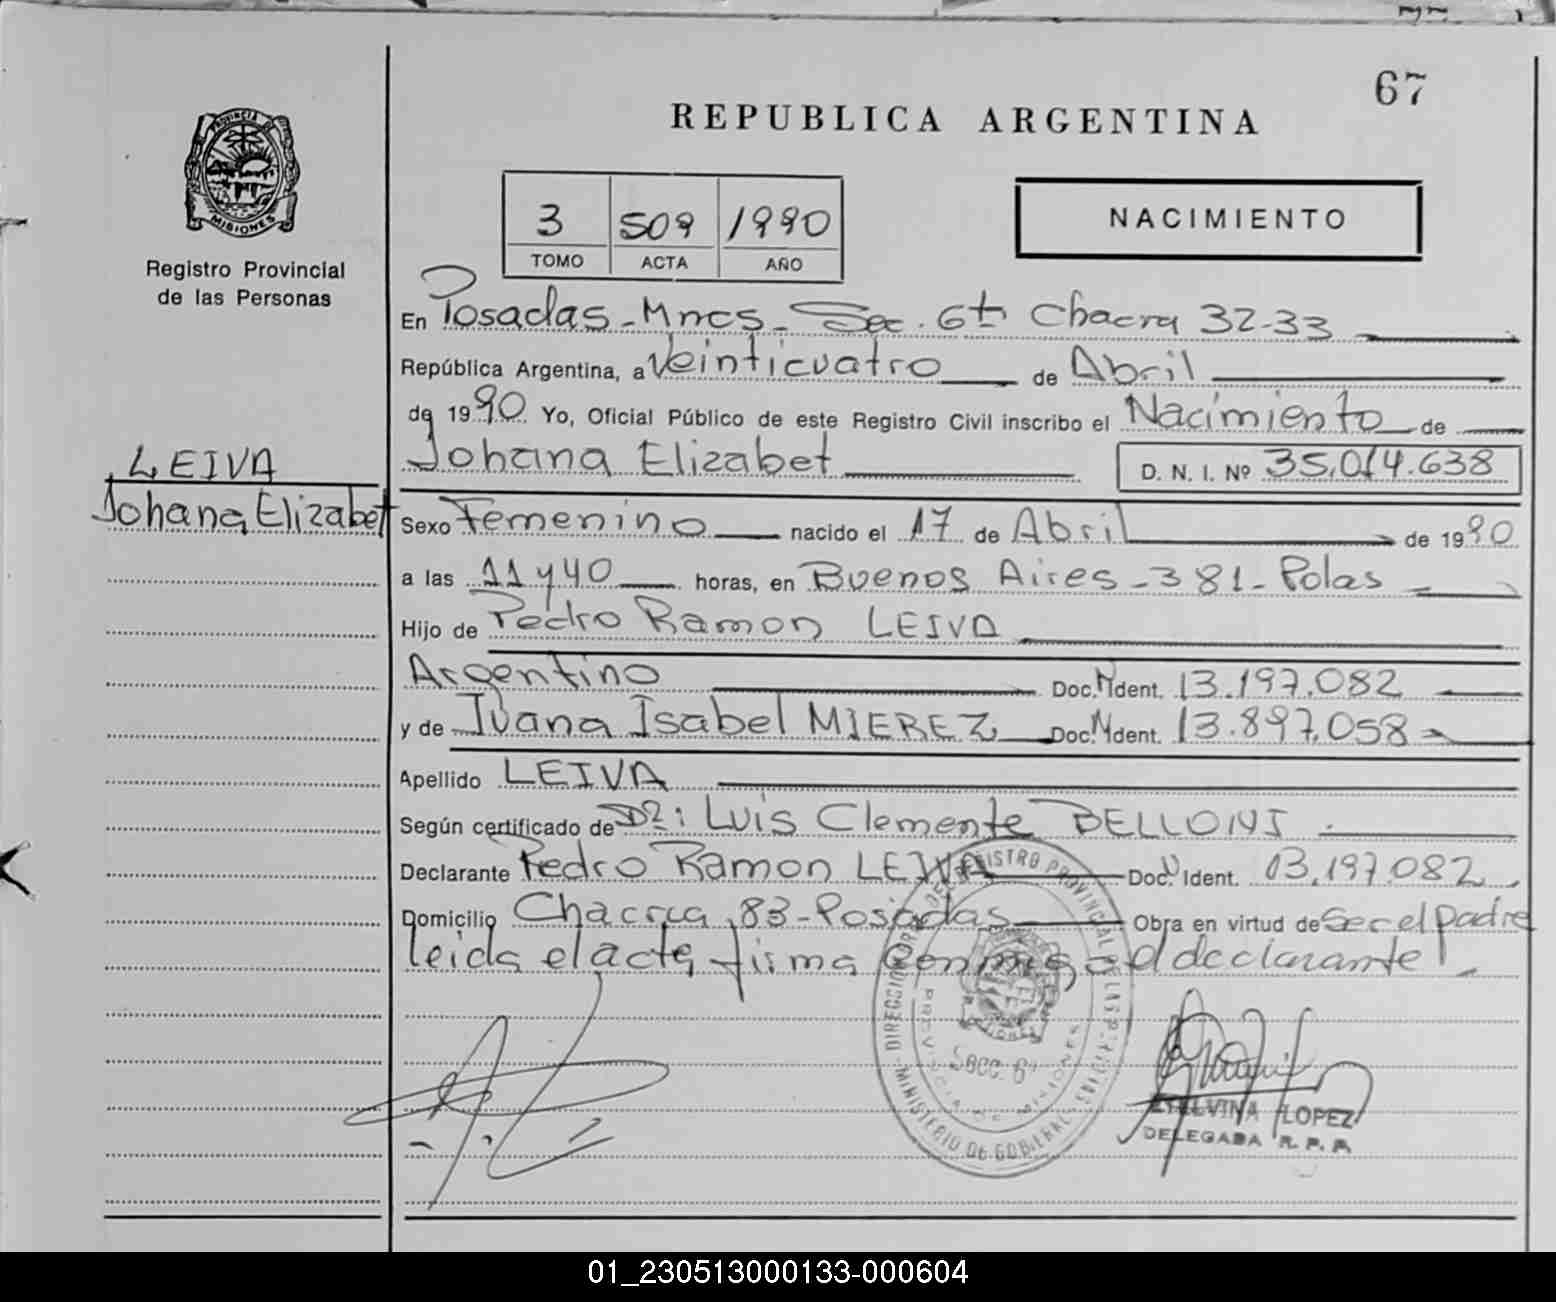 67
REPUBLICA ARGENTINA
PROVINCIA DE
MISIONES
Registro Provincial
de las Personas
3 509 1990
TOMO ACTA AÑO
NACIMIENTO
En Posadas - Mnes - Sec. 6ta Chacra 32-33
República Argentina, a Veinticuatro de Abril
de 1990 Yo, Oficial Público de este Registro Civil inscribo el Nacimiento de
Johana Elizabet D. N. I. Nº 35.014.638
LEIVA
Johana Elizabet
Sexo Femenino nacido el 17 de Abril de 1990
a las 11 y 40 horas, en Buenos Aires - 381 - Pdas
Hijo de Pedro Ramon LEIVA
Argentino Doc. N Ident. 13.197.082
y de Juana Isabel MIEREZ Doc. N Ident. 13.897.058
Apellido LEIVA
Según certificado de Dr: Luis Clemente BELLONI
Declarante Pedro Ramon LEIVA Doc. N Ident. 13.197.082
Domicilio Chacra 83 - Posadas Obra en virtud de Ser el padre
leida el acta firma conmigo el declarante.
DIRECCION DEL REGISTRO PROVINCIAL DE LAS PERSONAS
MINISTERIO DE GOBIERNO
PROVINCIA DE MISIONES
Secc. 6ª
ETELVINA LOPEZ
DELEGADA R. P. P.
01_230513000133-000604